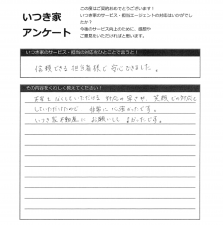 いつき家
アンケート
この度はご契約おめでとうございます!
いつき家のサービス・担当エージェントの対応はいかがでし
たか?
今後のサービス向上のために、感想や
ご意見をいただければと思います。
いつき家のサービス・担当の対応をひとことで言うと!
信頼できる担当者様で安心できました。
その内容をくわしく教えてください!
対応の早さや、笑顔での対応を
していただけたので 非常に心強かったです。
いつき家不動産に お願いして よかったです。